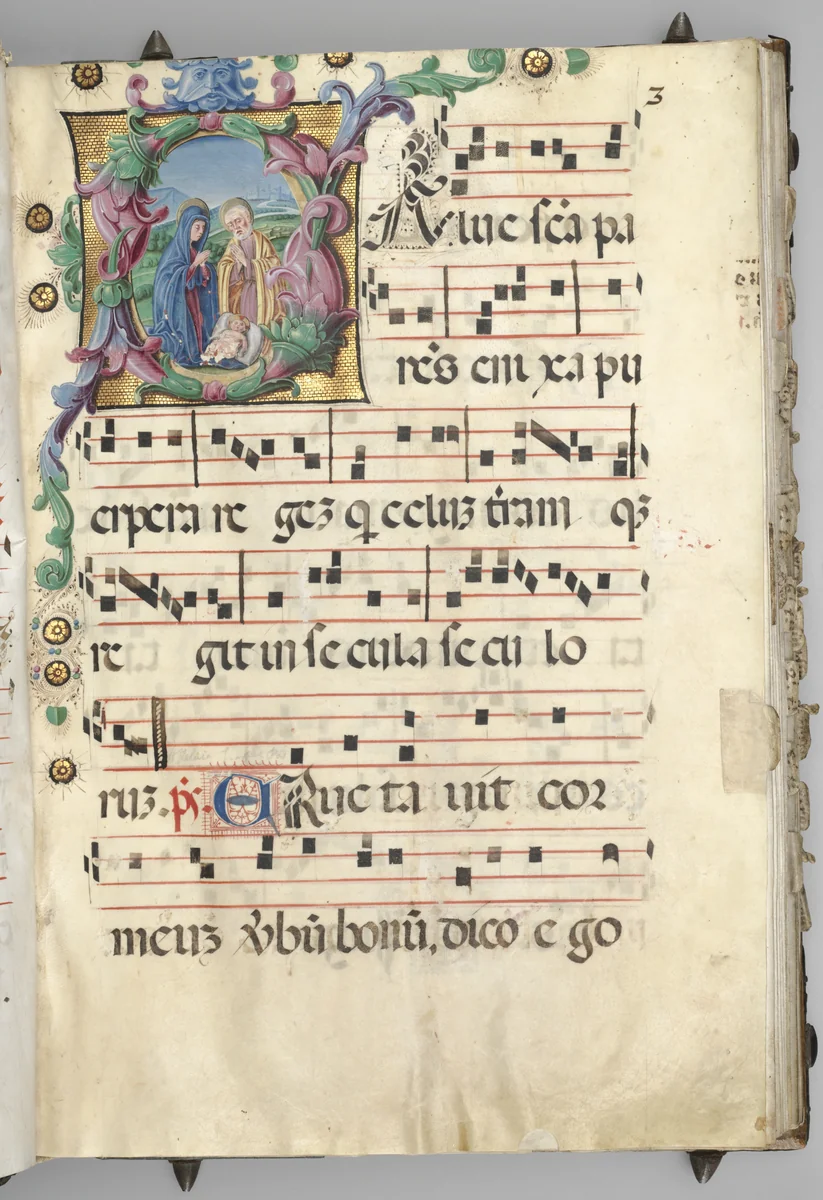 3
SAlue sc̃a pa
rẽs eni xa pu
erpera re gez q celuz tr̃am qz
re git in se cula se cu lo
ruz. p̃s. ERuc ta uit cor
meuz v̓bũ bonũ, dico e go